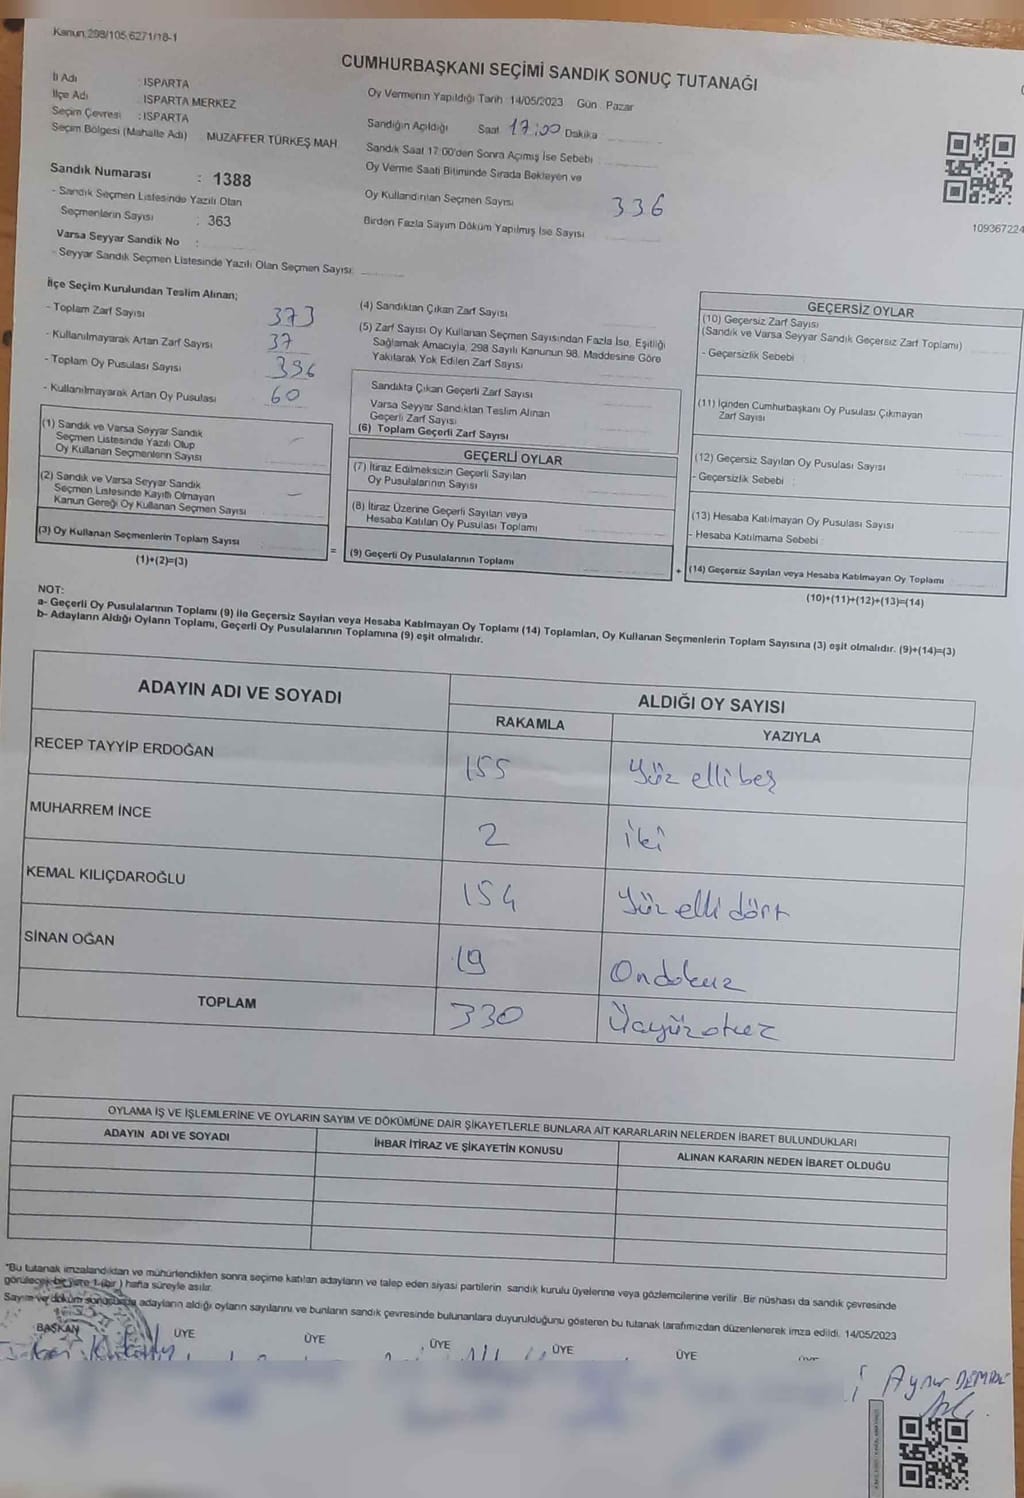 Kanun 298/105,6271/18-1
CUMHURBAŞKANI SEÇİMİ SANDIK SONUÇ TUTANAĞI
İl Adı : ISPARTA
İlçe Adı : ISPARTA MERKEZ
Seçim Çevresi : ISPARTA
Seçim Bölgesi (Mahalle Adı) : MUZAFFER TÜRKEŞ MAH.
Oy Vermenin Yapıldığı Tarih : 14/05/2023 Gün : Pazar
Sandığın Açıldığı Saat 17:00 Dakika
Sandık Saat 17:00'den Sonra Açımış İse Sebebi :
Oy Verme Saati Bitiminde Sırada Bekleyen ve
Oy Kullandırılan Seçmen Sayısı 336
Birden Fazla Sayım Döküm Yapılmış İse Sayısı
109367224
Sandık Numarası : 1388
- Sandık Seçmen Listesinde Yazılı Olan
Seçmenlerin Sayısı : 363
Varsa Seyyar Sandık No :
- Seyyar Sandık Seçmen Listesinde Yazılı Olan Seçmen Sayısı:
İlçe Seçim Kurulundan Teslim Alınan;
- Toplam Zarf Sayısı 373
- Kullanılmayarak Artan Zarf Sayısı 37
- Toplam Oy Pusulası Sayısı 396
- Kullanılmayarak Artan Oy Pusulası 60
(1) Sandık ve Varsa Seyyar Sandık
Seçmen Listesinde Yazılı Olup
Oy Kullanan Seçmenlerin Sayısı
(2) Sandık ve Varsa Seyyar Sandık
Seçmen Listesinde Kayıtlı Olmayan
Kanun Gereği Oy Kullanan Seçmen Sayısı
(3) Oy Kullanan Seçmenlerin Toplam Sayısı
(1)+(2)=(3)
=
(4) Sandıktan Çıkan Zarf Sayısı
(5) Zarf Sayısı Oy Kullanan Seçmen Sayısından Fazla İse, Eşitliği
Sağlamak Amacıyla, 298 Sayılı Kanunun 98. Maddesine Göre
Yakılarak Yok Edilen Zarf Sayısı
Sandıkta Çıkan Geçerli Zarf Sayısı
Varsa Seyyar Sandıktan Teslim Alınan
Geçerli Zarf Sayısı
(6) Toplam Geçerli Zarf Sayısı
GEÇERLİ OYLAR
(7) İtiraz Edilmeksizin Geçerli Sayılan
Oy Pusulalarının Sayısı
(8) İtiraz Üzerine Geçerli Sayılan veya
Hesaba Katılan Oy Pusulası Toplamı
(9) Geçerli Oy Pusulalarının Toplamı
+
GEÇERSİZ OYLAR
(10) Geçersiz Zarf Sayısı
(Sandık ve Varsa Seyyar Sandık Geçersiz Zarf Toplamı)
- Geçersizlik Sebebi :
(11) İçinden Cumhurbaşkanı Oy Pusulası Çıkmayan
Zarf Sayısı
(12) Geçersiz Sayılan Oy Pusulası Sayısı
- Geçersizlik Sebebi :
(13) Hesaba Katılmayan Oy Pusulası Sayısı
- Hesaba Katılmama Sebebi :
(14) Geçersiz Sayılan veya Hesaba Katılmayan Oy Toplamı
(10)+(11)+(12)+(13)=(14)
NOT:
a- Geçerli Oy Pusulalarının Toplamı (9) ile Geçersiz Sayılan veya Hesaba Katılmayan Oy Toplamı (14) Toplamları, Oy Kullanan Seçmenlerin Toplam Sayısına (3) eşit olmalıdır. (9)+(14)=(3)
b- Adayların Aldığı Oyların Toplamı, Geçerli Oy Pusulalarının Toplamına (9) eşit olmalıdır.
ADAYIN ADI VE SOYADI
ALDIĞI OY SAYISI
RAKAMLA YAZIYLA
RECEP TAYYİP ERDOĞAN 155 Yüz elli beş
MUHARREM İNCE 2 iki
KEMAL KILIÇDAROĞLU 154 Yüz elli dört
SİNAN OĞAN 19 Ondokuz
TOPLAM 330 Üçyüzotuz
OYLAMA İŞ VE İŞLEMLERİNE VE OYLARIN SAYIM VE DÖKÜMÜNE DAİR ŞİKAYETLERLE BUNLARA AİT KARARLARIN NELERDEN İBARET BULUNDUKLARI
ADAYIN ADI VE SOYADI İHBAR İTİRAZ VE ŞİKAYETİN KONUSU ALINAN KARARIN NEDEN İBARET OLDUĞU
*Bu tutanak imzalandıktan ve mühürlendikten sonra seçime katılan adayların ve talep eden siyasi partilerin sandık kurulu üyelerine veya gözlemcilerine verilir. Bir nüshası da sandık çevresinde
görülecek bir yere 1 (bir) hafta süreyle asılır.
Sayım ve döküm sonucunda adayların aldığı oyların sayılarını ve bunların sandık çevresinde bulunanlara duyurulduğunu gösteren bu tutanak tarafımızdan düzenlenerek imza edildi. 14/05/2023
BAŞKAN ÜYE ÜYE ÜYE ÜYE ÜYE
Aynur